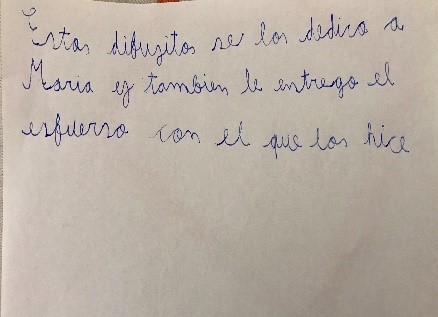 Estos dibujitos se los dedico a
Maria ey tambien le entrego el
esfuerso con el que los hice